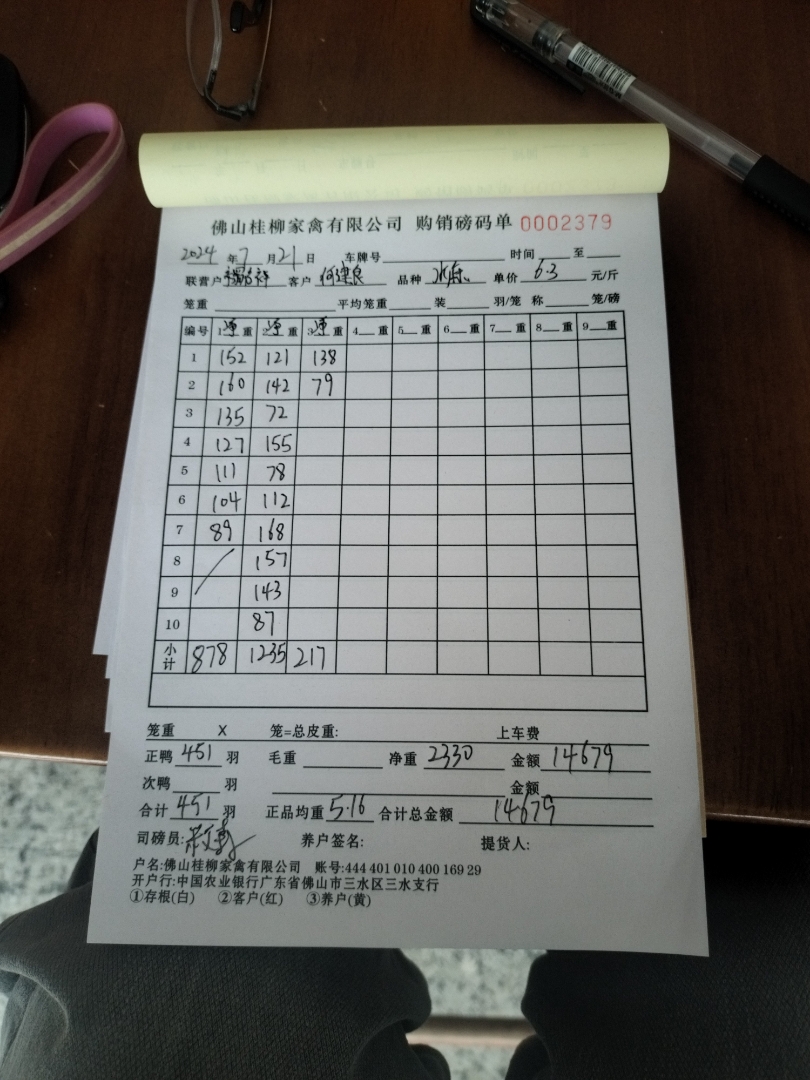 佛山桂柳家禽有限公司 购销磅码单 0002379
2024 年 7 月 21 日 车牌号 时间 至
联营户 客户 何建良 品种 单价 6.3 元/斤
笼重 平均笼重 装 羽/笼 称 笼/磅
编号 1 重 2 重 3 重 4 重 5 重 6 重 7 重 8 重 9 重
1 152 121 138
2 160 142 79
3 135 72
4 127 155
5 111 78
6 104 112
7 89 168
8 157
9 143
10 87
小计 878 1235 217
笼重 X 笼=总皮重: 上车费
正鸭 451 羽 毛重 净重 2330 金额 14679
次鸭 羽 金额
合计 451 羽 正品均重 5.16 合计总金额 14679
司磅员: 养户签名: 提货人:
户名:佛山桂柳家禽有限公司 账号:444 401 010 400 169 29
开户行:中国农业银行广东省佛山市三水区三水支行
①存根(白) ②客户(红) ③养户(黄)